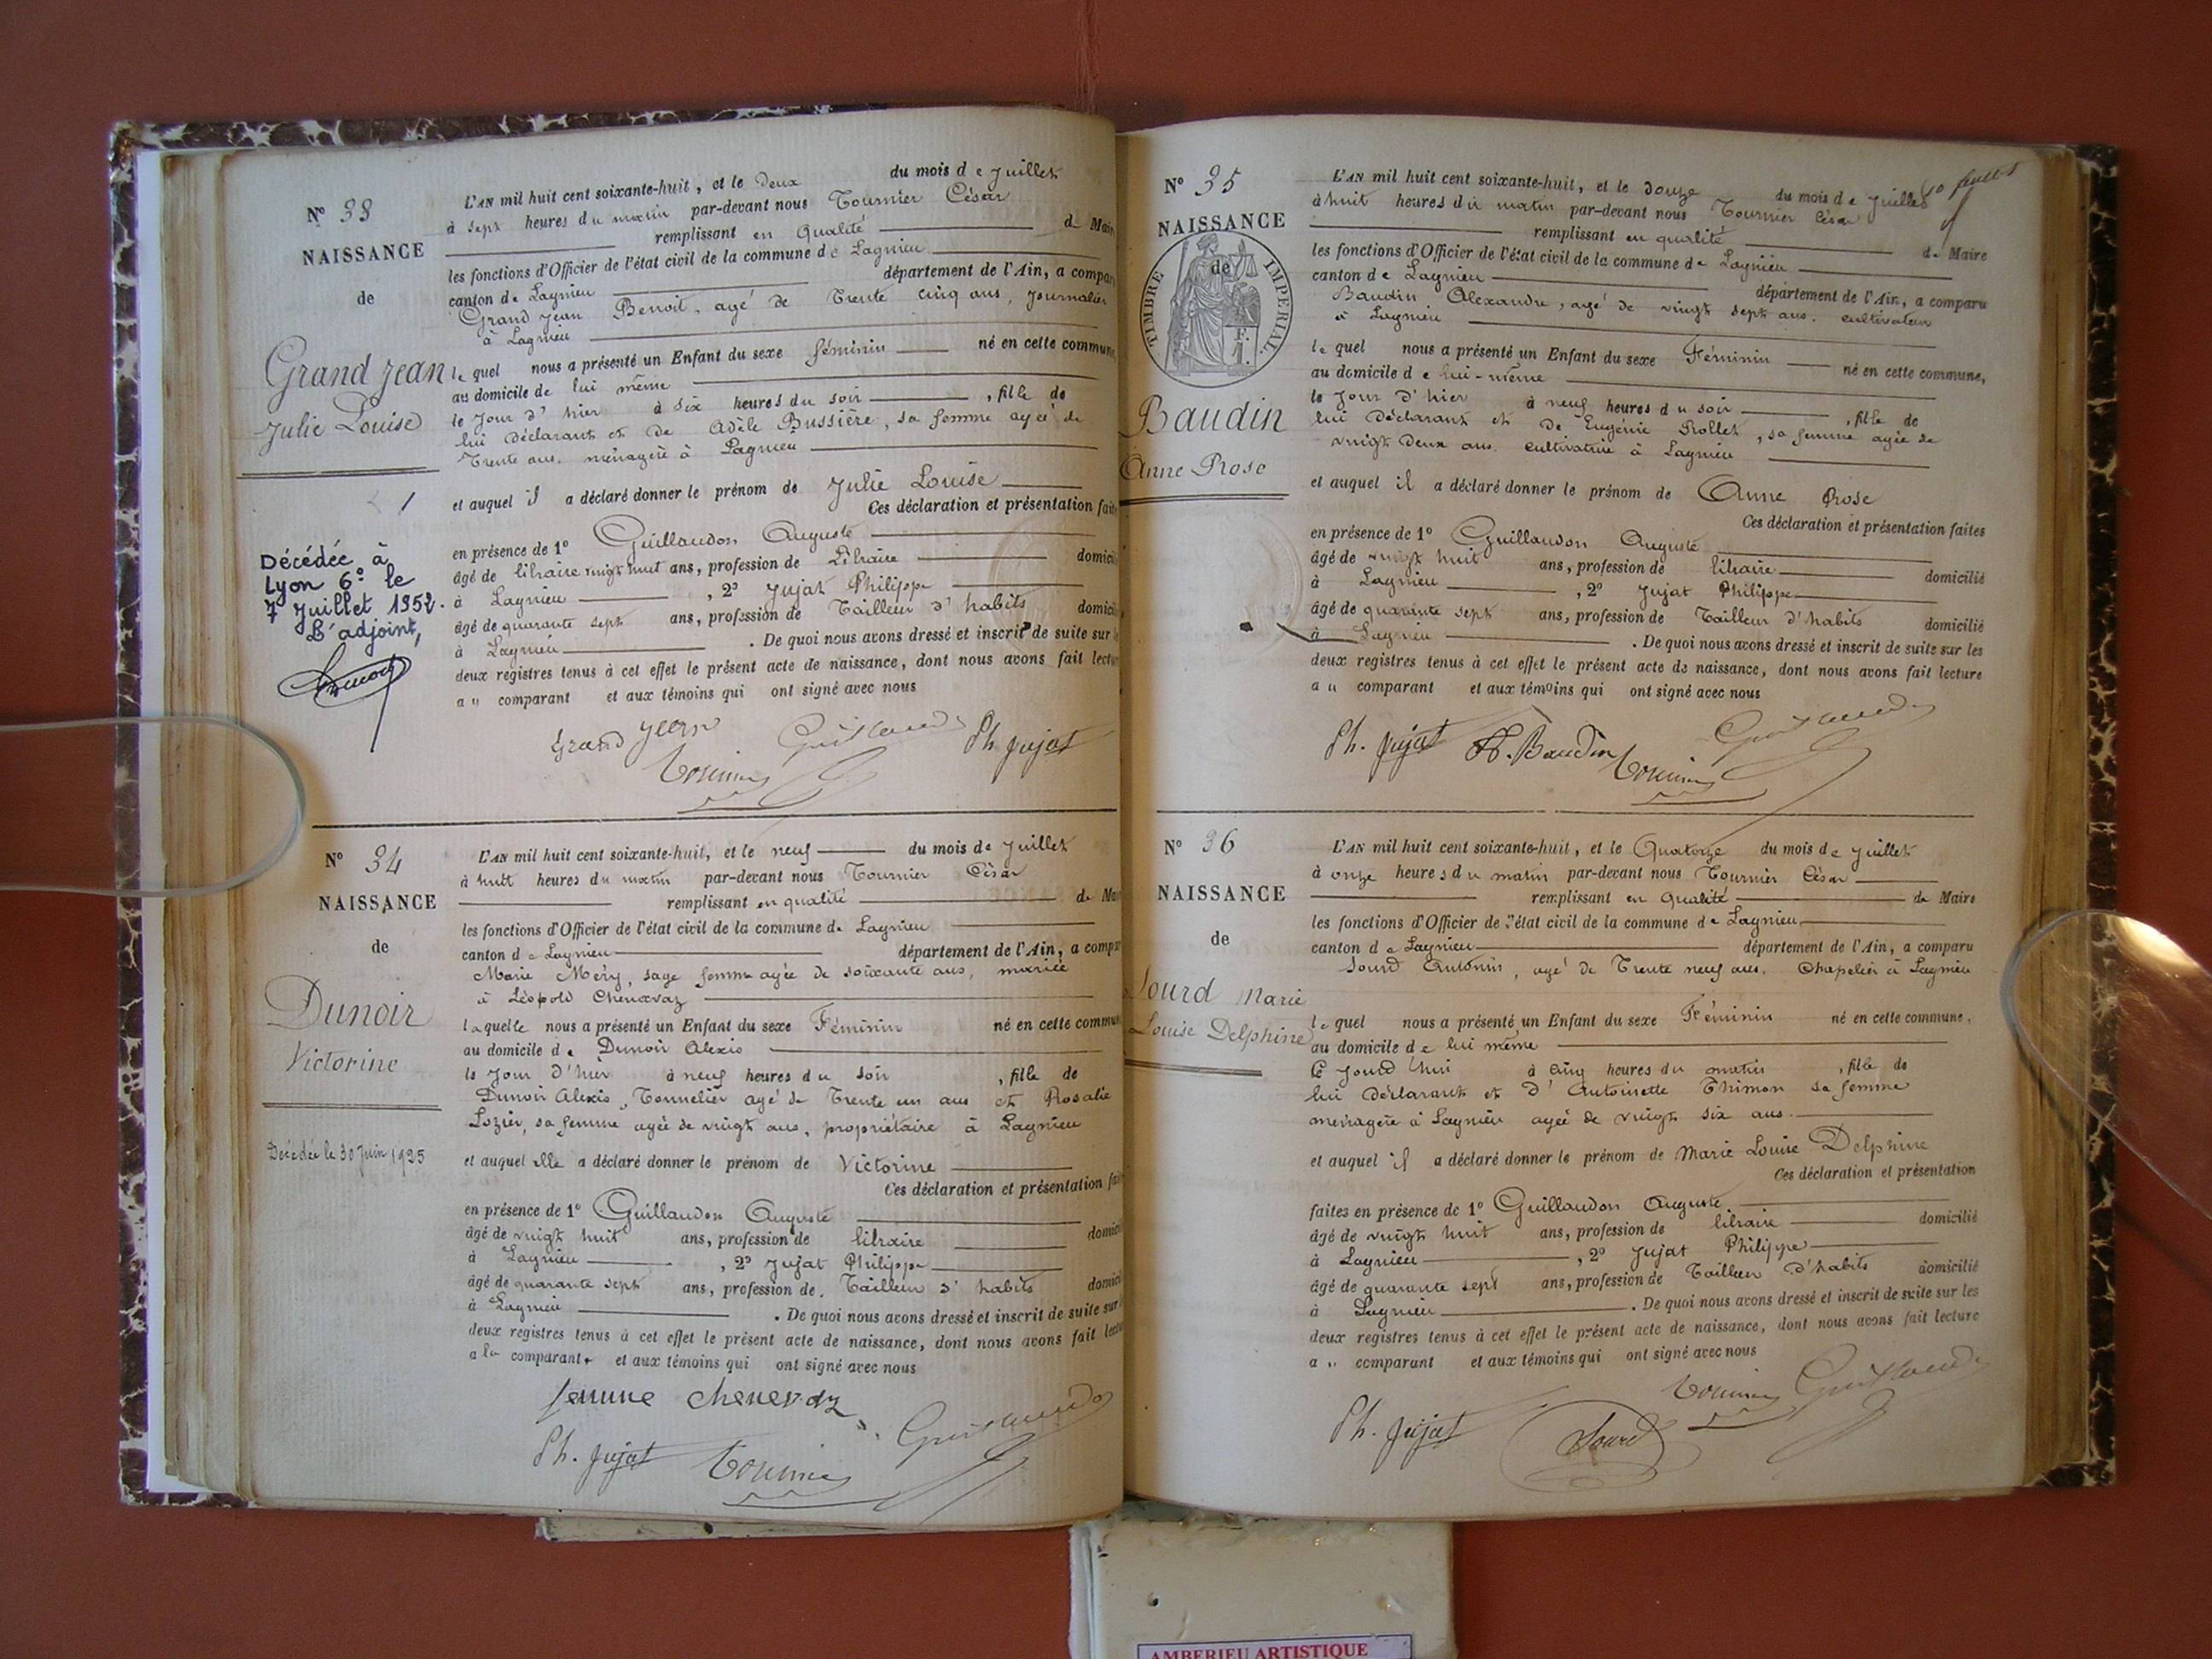 N° 33
NAISSANCE
de
Grand Jean
Julie Louise
1
Décédée à
Lyon 6e le
7 Juillet 1952.
L'adjoint,
L'AN mil huit cent soixante-huit, et le Deux du mois de Juillet
à Sept heures du matin par-devant nous Tournier César
remplissant en Qualité de Mair
les fonctions d'Officier de l'état civil de la commune de Lagnieu
canton de Lagnieu département de l'Ain, a compar
Grand Jean Benoit, agé de Trente cinq ans, Journalier
à Lagnieu
le quel nous a présenté un Enfant du sexe féminin né en cette commune
au domicile de lui même
le Jour d'hier à six heures du soir, fille de
lui Déclarant et de Adèle Bussière, sa femme agée de
Trente ans. ménagère à Lagnieu
et auquel il a déclaré donner le prénom de Julie Louise
Ces déclaration et présentation faite
en présence de 1° Guillaudon Auguste
âgé de libraire vingt huit ans, profession de Libraire domici
à Lagnieu, 2° Jujat Philippe
âgé de quarante sept ans, profession de Tailleur d'habits domici
à Lagnieu. De quoi nous avons dressé et inscrit de suite sur
deux registres tenus à cet effet le présent acte de naissance, dont nous avons fait lectur
au comparant et aux témoins qui ont signé avec nous
Grand Jean Guillaudon Ph. Jujat
Tournier
N° 34
NAISSANCE
de
Dunoir
Victorine
Décédée le 30 Juin 1935
L'AN mil huit cent soixante-huit, et le neuf du mois de Juillet
à huit heures du matin par-devant nous Tournier César
remplissant en qualité de Mai
les fonctions d'Officier de l'état civil de la commune de Lagnieu
canton de Lagnieu département de l'Ain, a compar
Marie Méry, sage femme agée de soixante ans, mariée
à Léopold Chenavaz
laquelle nous a présenté un Enfant du sexe Féminin né en cette commun
au domicile de Dunoir Alexis
le Jour d'hier à neuf heures du soir, fille de
Dunoir Alexis, Tonnelier agé de Trente un ans et Rosalie
Lozier, sa femme agée de vingt ans, propriétaire à Lagnieu
et auquel elle a déclaré donner le prénom de Victorine
Ces déclaration et présentation fai
en présence de 1° Guillaudon Auguste
âgé de vingt huit ans, profession de libraire domici
à Lagnieu, 2° Jujat Philippe
âgé de quarante sept ans, profession de Tailleur d'habits domici
à Lagnieu. De quoi nous avons dressé et inscrit de suite sur
deux registres tenus à cet effet le présent acte de naissance, dont nous avons fait lectu
a la comparante et aux témoins qui ont signé avec nous
femme chenevaz
Ph. Jujat Tournier Guillaudon
N° 35
NAISSANCE
de
TIMBRE IMPERIAL
F.
1.
Baudin
Anne Rose
L'AN mil huit cent soixante-huit, et le douze du mois de Juillet
à huit heures du matin par-devant nous Tournier César
remplissant en qualité de Maire
les fonctions d'Officier de l'état civil de la commune de Lagnieu
canton de Lagnieu département de l'Ain, a comparu
Baudin Alexandre, agé de vingt sept ans. cultivateur
à Lagnieu
le quel nous a présenté un Enfant du sexe Féminin né en cette commune,
au domicile de lui-même
le Jour d'hier à neuf heures du soir, fille de
lui Déclarant et de Eugénie Rollet, sa femme agée de
vingt Deux ans cultivatrice à Lagnieu
et auquel il a déclaré donner le prénom de Anne Rose
Ces déclaration et présentation faites
en présence de 1° Guillaudon Auguste
âgé de vingt huit ans, profession de libraire domicilié
à Lagnieu, 2° Jujat Philippe
âgé de quarante sept ans, profession de Tailleur d'habits domicilié
à Lagnieu. De quoi nous avons dressé et inscrit de suite sur les
deux registres tenus à cet effet le présent acte de naissance, dont nous avons fait lecture
au comparant et aux témoins qui ont signé avec nous
Ph. Jujat A. Baudin Tournier Guillaudon
N° 36
NAISSANCE
de
Sourd Marie
Louise Delphine
L'AN mil huit cent soixante-huit, et le Quatorze du mois de Juillet
à onze heures du matin par-devant nous Tournier César
remplissant en Qualité de Maire
les fonctions d'Officier de l'état civil de la commune de Lagnieu
canton de Lagnieu département de l'Ain, a comparu
Sourd Antonin, agé de Trente neuf ans. Chapelier à Lagnieu
le quel nous a présenté un Enfant du sexe Féminin né en cette commune.
au domicile de lui même
ce Jourd'hui à cinq heures du matin, fille de
lui Déclarant et d'Antoinette Thimon sa femme
ménagère à Lagnieu agée de vingt six ans.
et auquel il a déclaré donner le prénom de Marie Louise Delphine
Ces déclaration et présentation
faites en présence de 1° Guillaudon Auguste
âgé de vingt huit ans, profession de libraire domicilié
à Lagnieu, 2° Jujat Philippe
âgé de quarante sept ans, profession de Tailleur d'habits domicilié
à Lagnieu. De quoi nous avons dressé et inscrit de suite sur les
deux registres tenus à cet effet le présent acte de naissance, dont nous avons fait lecture
au comparant et aux témoins qui ont signé avec nous
Tournier Guillaudon
Ph. Jujat Sourd
AMBERIEU ARTISTIQUE